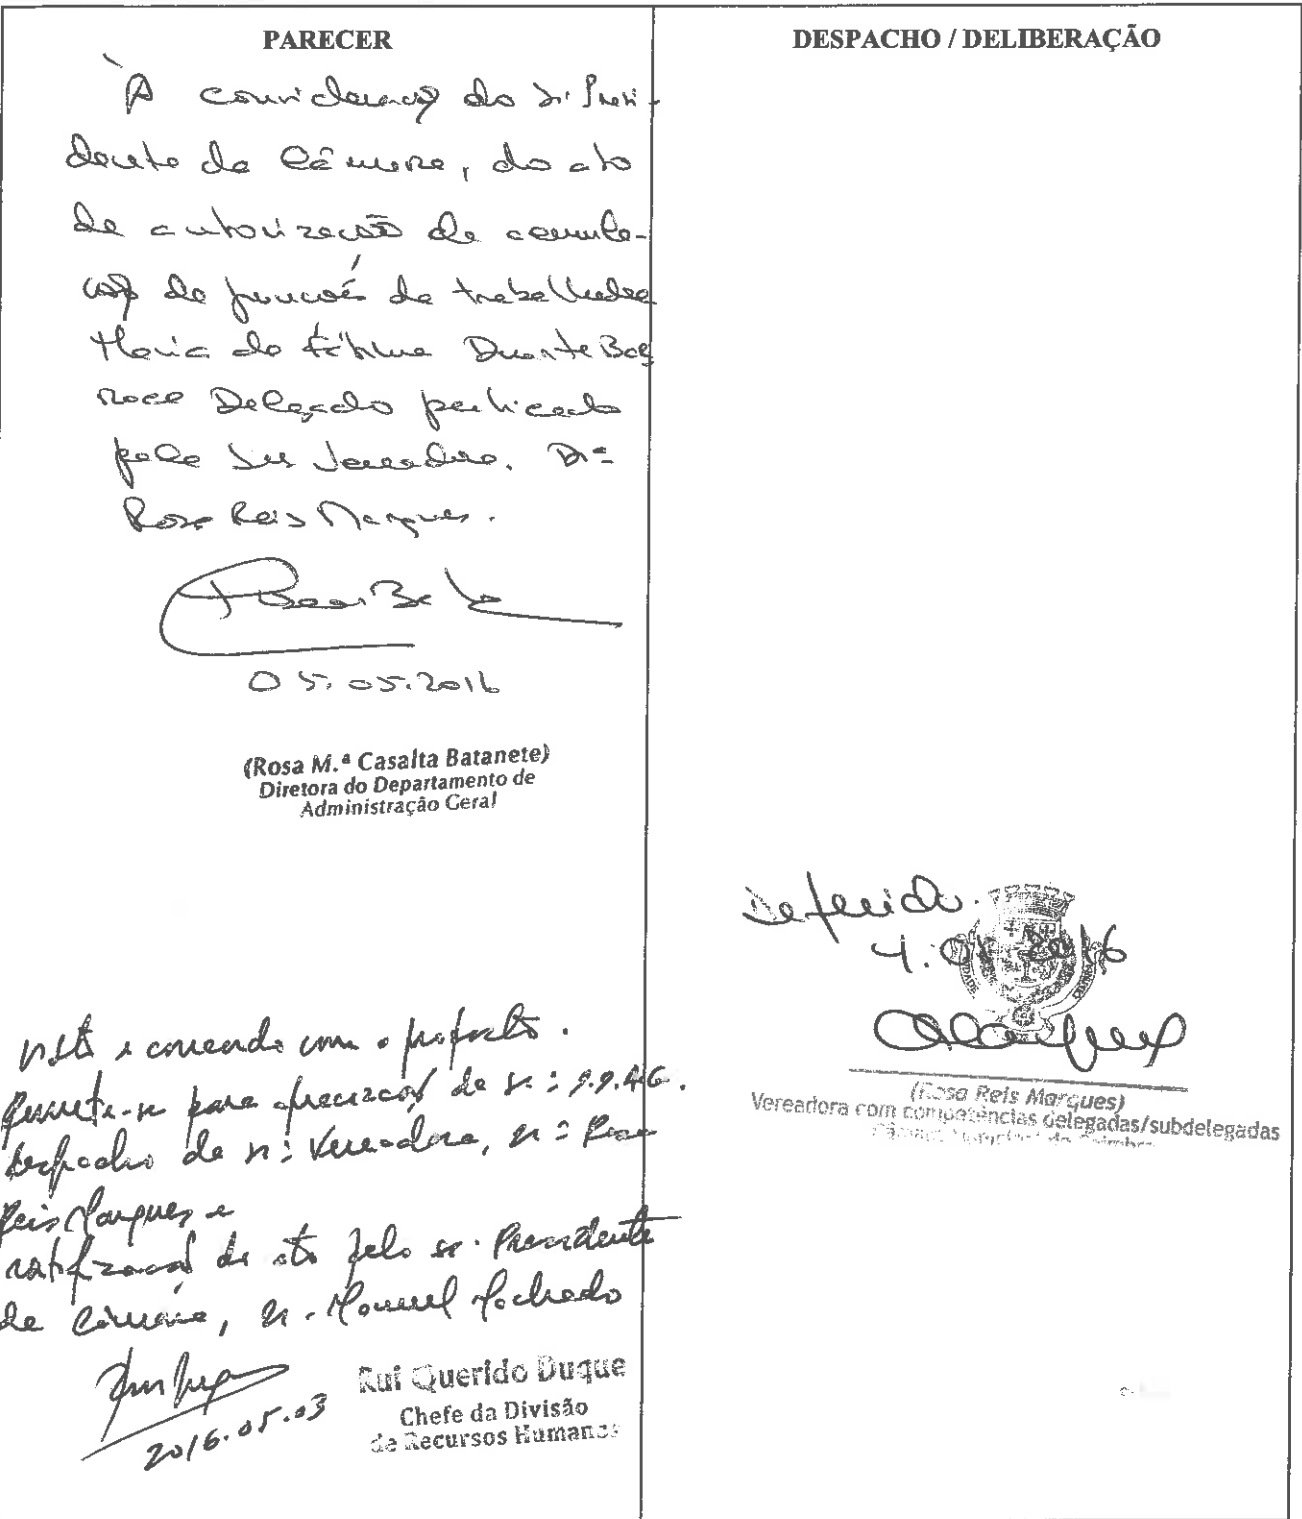 PARECER
À consideração do Sr. Presi-
dente da Câmara, do ato
de autorização de acumula-
ção de funções da trabalhadora
Maria de Fátima Duarte Bar
roca Delgado praticado
pela Sra Vereadora. Drª
Rosa Reis Marques.
05.05.2016
(Rosa M.ª Casalta Batanete)
Diretora do Departamento de
Administração Geral
Visto e concordo com o proposto.
Remeta-se para apreciação da Srª D.D.A.G.
despacho da Srª Vereadora, Drª Rosa
Reis Marques e
ratificação do ato pelo Sr. Presidente
da Câmara, Dr. Manuel Machado
2016.05.03
Rui Querido Duque
Chefe da Divisão
de Recursos Humanos
DESPACHO / DELIBERAÇÃO
Deferido.
4. 2016
(Rosa Reis Marques)
Vereadora com competências delegadas/subdelegadas
Câmara Municipal de Coimbra